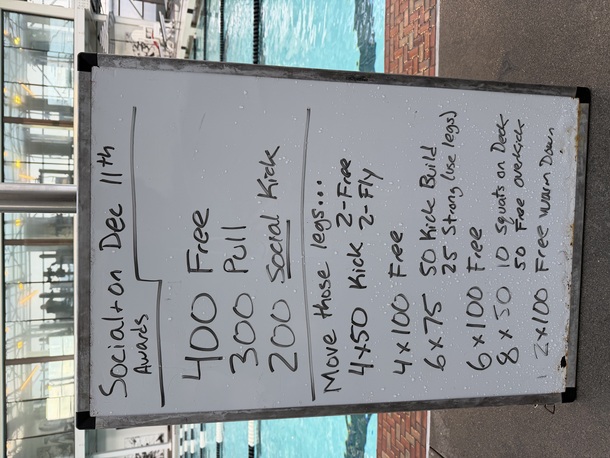 Social + on Dec 11th
Awards
400 Free
300 Pull
200 Social Kick
Move those legs...
4x50 Kick 2-Free
2-Fly
4x100 Free
6x75 50 Kick Build
25 Strong (use legs)
6x100 Free
8x50 10 Squats on Deck
50 Free overkick
2x100 Free Warm Down